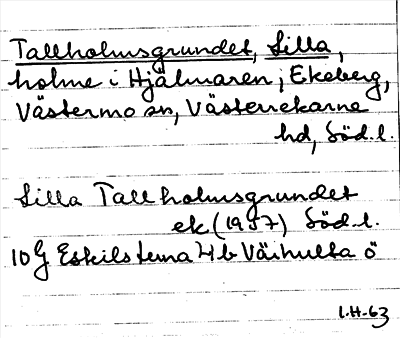 Tallholmsgrundet, Lilla,
holme i Hjälmaren; Ekeberg,
Västermo sn, Västerrekarne
hd, Söd.l.
Lilla Tallholmsgrundet
ek (1957) Söd.l.
10G Eskilstuna 4b Väihulta ö
I.H-63